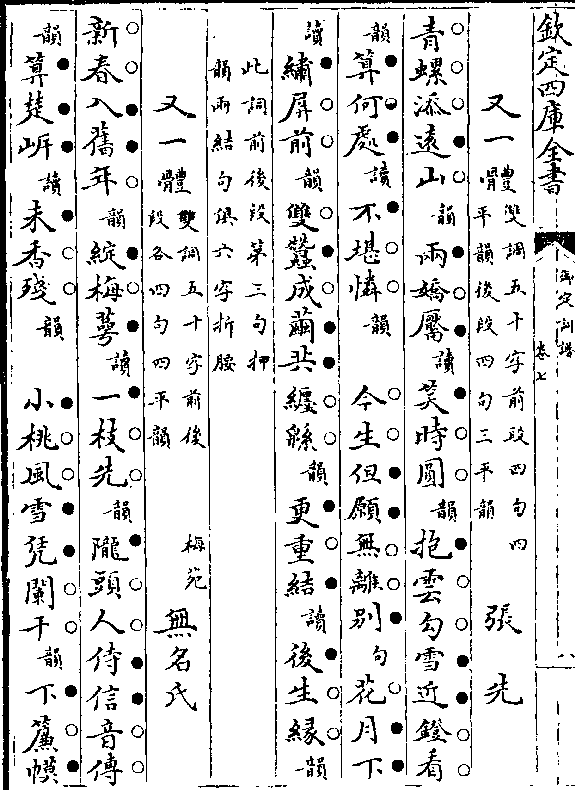 欽定四庫全書
御定詞譜 卷七 八
又一體 雙調五十字前段四句四平韻後段四句三平韻 張先
青螺添遠山韻兩嬌靨讀笑時圓韻抱雲勾雪近鐙看
韻算何處讀不堪憐韻 今生但願無離別句花月下
讀繡屏前韻雙蠶成繭共纏綿韻更重結讀後生緣韻
此詞前後段第三句押
韻兩結句俱六字折腰
又一體 雙調五十字前後段各四句四平韻 梅苑 無名氏
新春入舊年韻綻梅萼讀一枝先韻隴頭人侍信音傳
韻算楚岸讀未香殘韻 小桃風雪凭闌干韻下簾幙